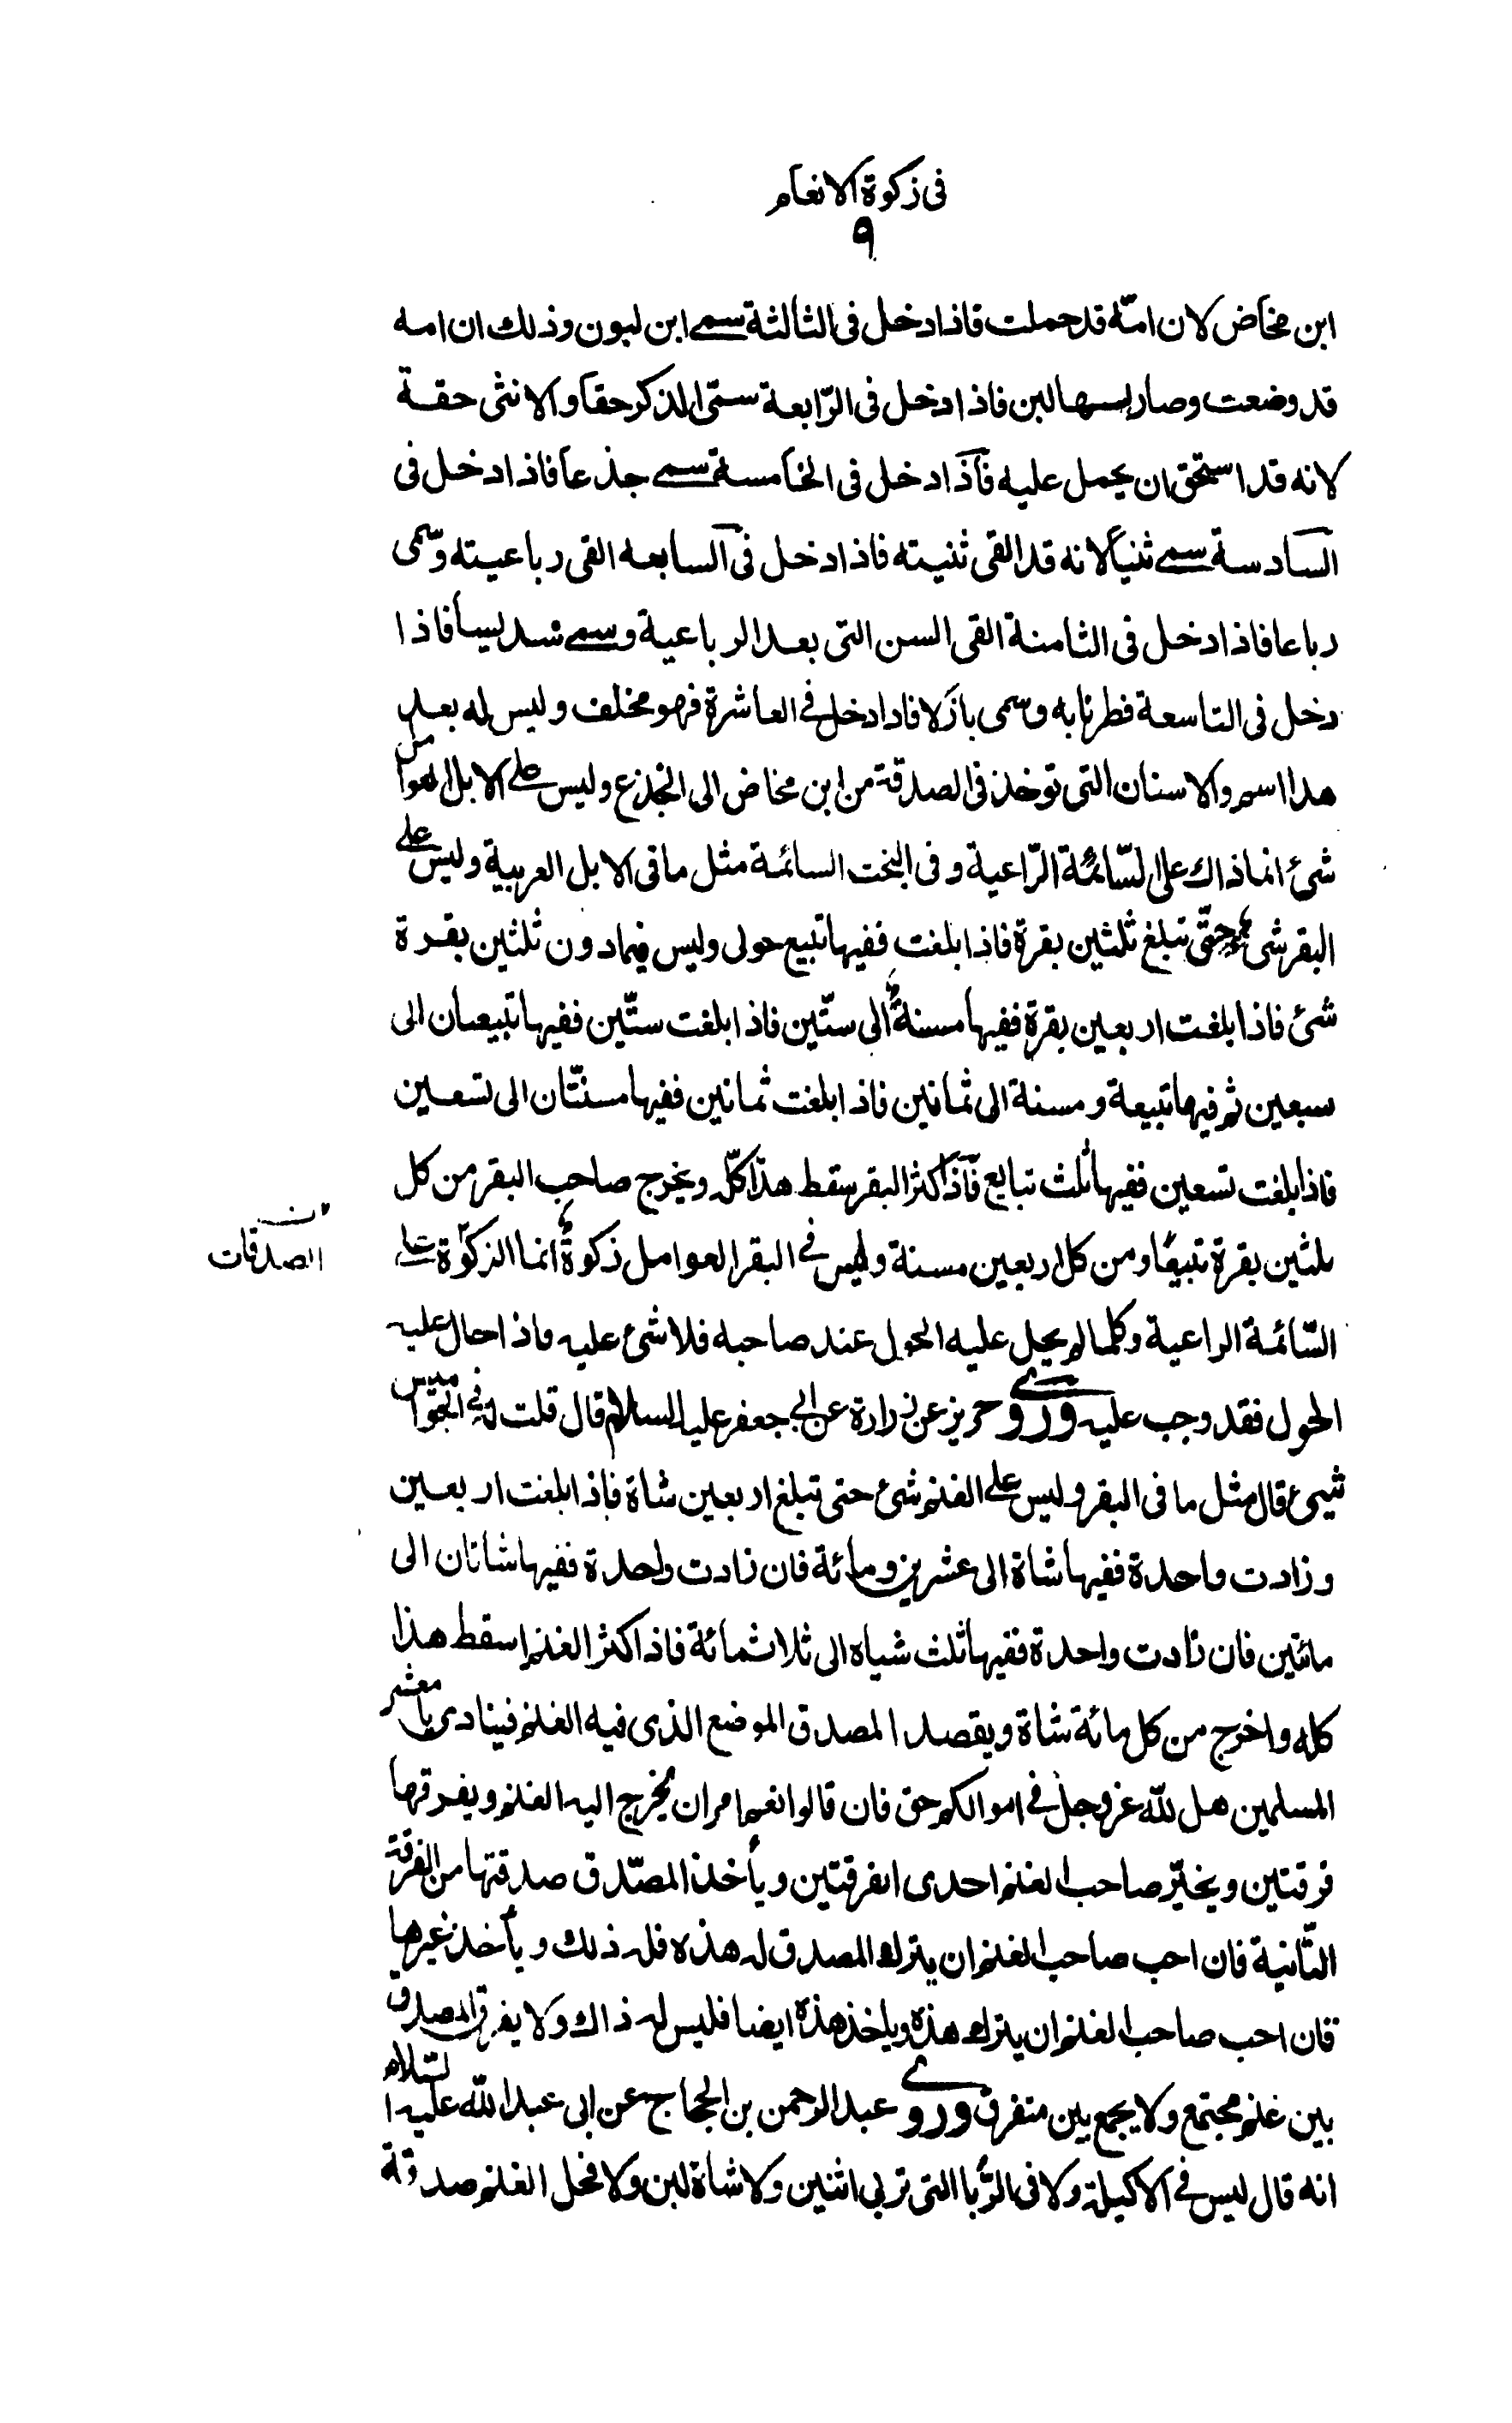 فى زكوة الانعام
٩
ابن مخاض لان امّه قد حملت فاذا دخل فى الثالثة سمى ابن لبون وذلك ان امه
قد وضعت وصار لها لبن فاذا دخل فى الرّابعة سمّى الذكر حقا والانثى حقة
لانه قد استحق ان يحمل عليه فاذا دخل فى الخامسة سمى جذعا فاذا دخل فى
السادسة سمى ثنيا لانه قد القى ثنيته فاذا دخل فى السابعه القى رباعيته وسمى
رباعا فاذا دخل فى الثامنة القى السن التى بعد الرباعية وسمى سديسا فاذا
دخل فى التاسعة فطر نابه وسمى بازلا فاذا دخل فى العاشرة فهو مخلف وليس له بعد
هذا اسم والاسنان التى توخذ فى الصدقة من ابن مخاض الى الجذع وليس على الابل العوامل
شئ انما ذاك على السّائمة الرّاعية وفى البخت السائمة مثل ما فى الابل العربية وليس على
البقر شئ حتّى تبلغ ثلثين بقرة فاذا بلغت ففيها تبيع حولى وليس فيما دون ثلثين بقرة
شئ فاذا بلغت اربعين بقرة ففيها مسنة الى ستّين فاذا بلغت ستّين ففيها تبيعان الى
سبعين ثم فيها تبيعة ومسنة الى ثمانين فاذا بلغت ثمانين ففيها مسنتّان الى تسعين
فاذا بلغت تسعين ففيها ثلث تبايع فاذا كثر البقر سقط هذا كلّه ويخرج صاحب البقر من كل
ثلثين بقرة تبيعا ومن كل اربعين مسنة وليس فى البقر العوامل زكوة انما الزكوة على
الصدقات
السّائمة الراعية وكلما لم يحل عليه الحول عند صاحبه فلا شئ عليه فاذا حال عليه
الحول فقد وجب عليه وروى حريز عن زرارة عن ابى جعفر عليه السلام قال قلت له فى الجواميس
شيئ قال مثل ما فى البقر وليس على الغنم شئ حتى تبلغ اربعين شاة فاذا بلغت اربعين
وزادت واحدة ففيها شاة الى عشرين ومائة فان زادت واحدة ففيها شاتان الى
مائتين فان زادت واحدة ففيها ثلث شياه الى ثلاثمائة فاذا كثر الغنم اسقط هذا
كله واخرج من كل مائة شاة ويقصد المصدق الموضع الذى فيه الغنم فينادى يا معشر
المسلمين هل لله عز وجل فى اموالكم حق فان قالوا نعم امر ان يخرج اليه الغنم ويفرقها
فرقتين ويخيّر صاحب الغنم احدى الفرقتين ويأخذ المصّدق صدقتها من الفرقة
الثّانية فان احب صاحب الغنم ان يترك المصدق له هذه فله ذلك ويأخذ غيرها
فان احب صاحب الغنم ان يترك هذه وياخذ هذه ايضا فليس له ذاك ولا يفرق المصدق
بين غنم مجتمع ولا يجمع بين متفرق وروى عبد الرحمن بن الحجاج عن ابى عبد الله عليه السّلام
انه قال ليس فى الاكيلة ولا فى الرّبا التى تربى اثنين ولا شاة لبن ولا فحل الغنم صدقة